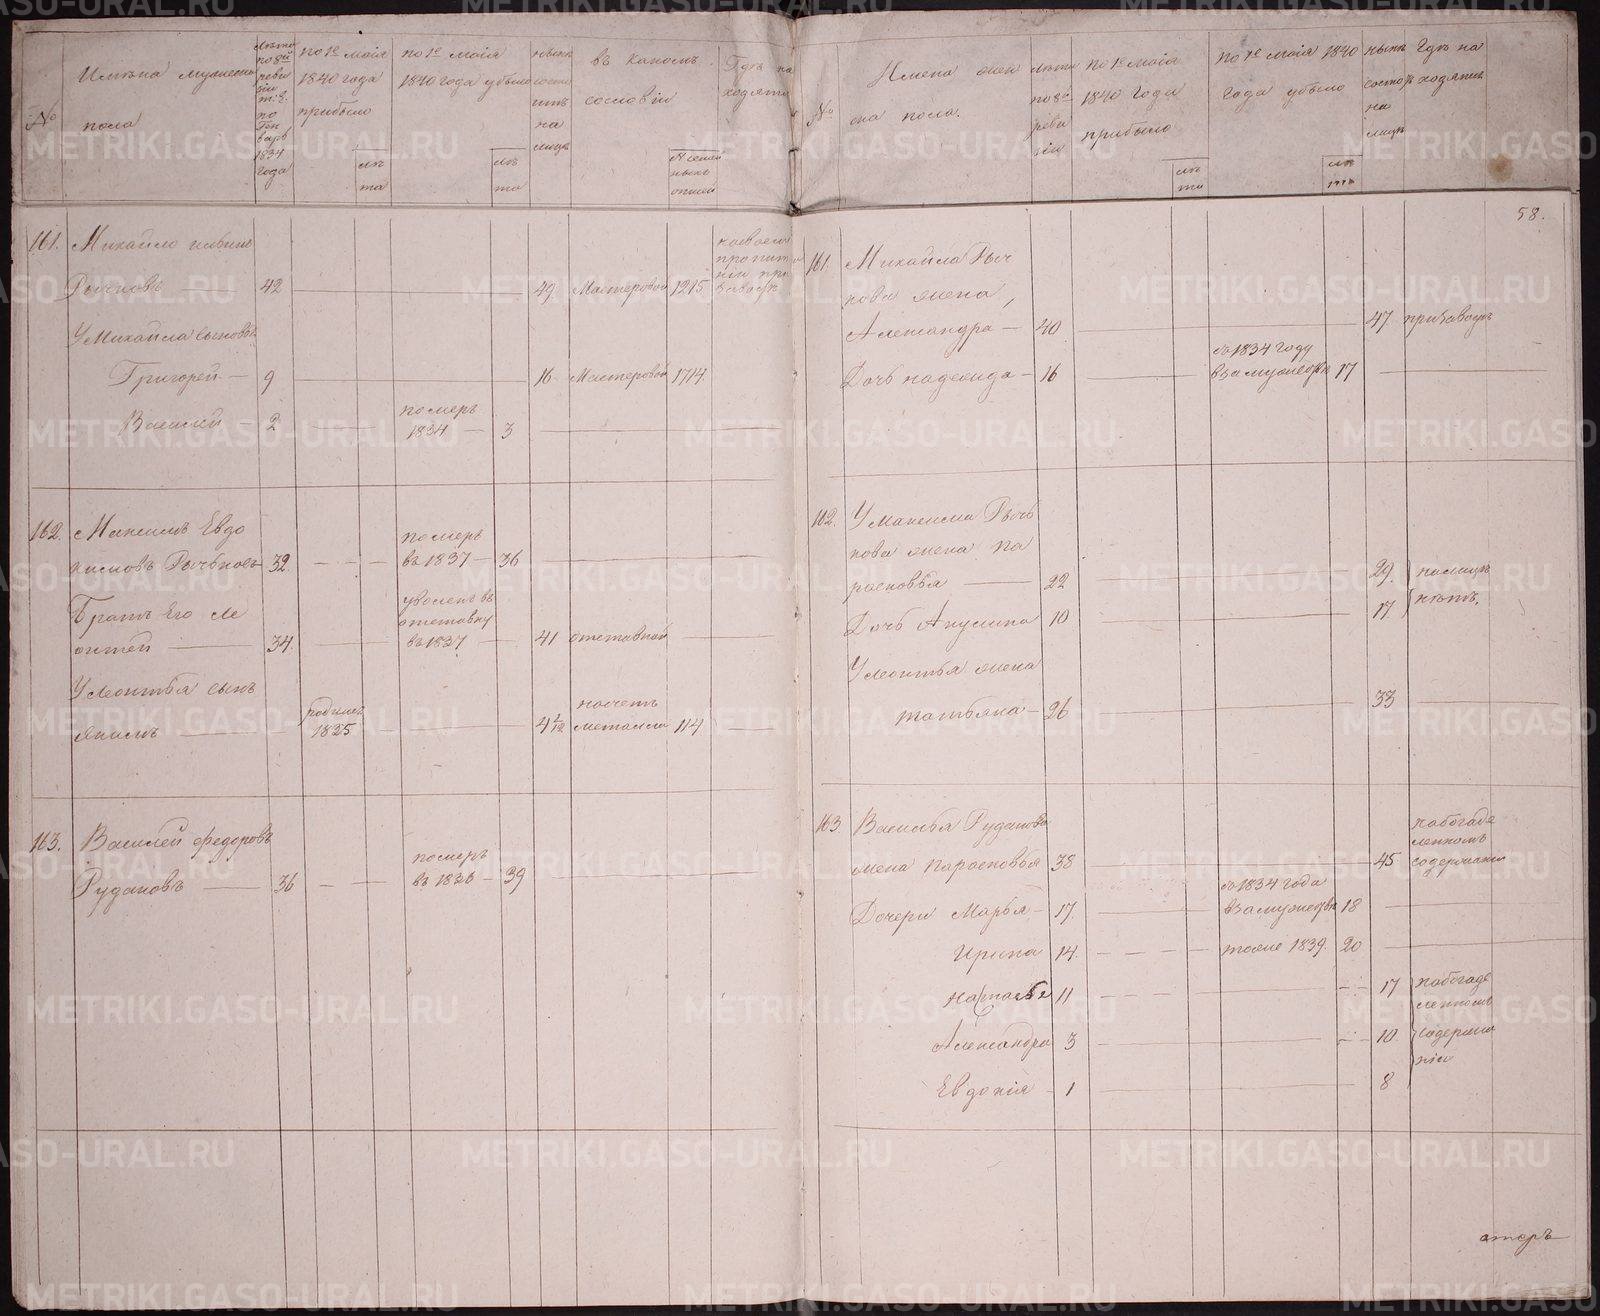 №
Имяна мужеска
пола
Лѣта
по 8й
реви
зіи
по
Ген
варь
1834
года
по 1е маія
1840 года
прибыло
лѣ
та
по 1е маія
1840 года убыло
лѣ
та
нынѣ
состо
итъ
на
лицѣ
въ каком.
сословіи
Гдѣ на
ходятся
161. Михайло
Рычковъ — 42 — 49 Мастеровой 1215
У Михайла сыновья
Григорей — 9 — 16 Мастеровой 1714
Василей — 2 — померъ
1834 — 3
162. Максимъ Евдо
кимовъ Рычьковъ 32 — померъ
въ 1837 — 36
Братъ Его Ле
онтей — 34 — уволенъ въ
отставку
въ 1837 — 41 отставной
У Леонтья сынъ
Якимъ — родился
1835 — 4 114
163. Василей Федоровъ
Рудаковъ — 36 — померъ
въ 1836 — 39
№
Имена жен
ска пола.
Лѣта
по 8е
реви
зіи
по 1е маія
1840 года
прибыло
лѣ
та
по 1е маія 1840
года убыло
лѣ
та
нынѣ
состоя
на
лицѣ
Гдѣ на
ходятся
58.
161. Михайла Рыч
кова жена,
Александра — 40 — 47 при заводѣ
Дочь надежда — 16 — въ 1834 году
в замужествѣ 17
162. У Максима Рычь
кова жена па
расковья — 22 — 29 налицѣ
Дочь Акулина 10 — 17 нѣтъ.
У Леонтья жена
татьяна — 26 — 33
163. Василья Рудакова
жена парасковья 38 — 45 набогаде
ленномъ
содержании
Дочери Марья — 17 — въ 1834 года
в замужествѣ 18
Ирина 14 — тоже 1839. 20
Наталья 11 — 17 набогаде
ленномъ
Александра 3 — 10 содержа
ніи
Евдокія — 1 — 8